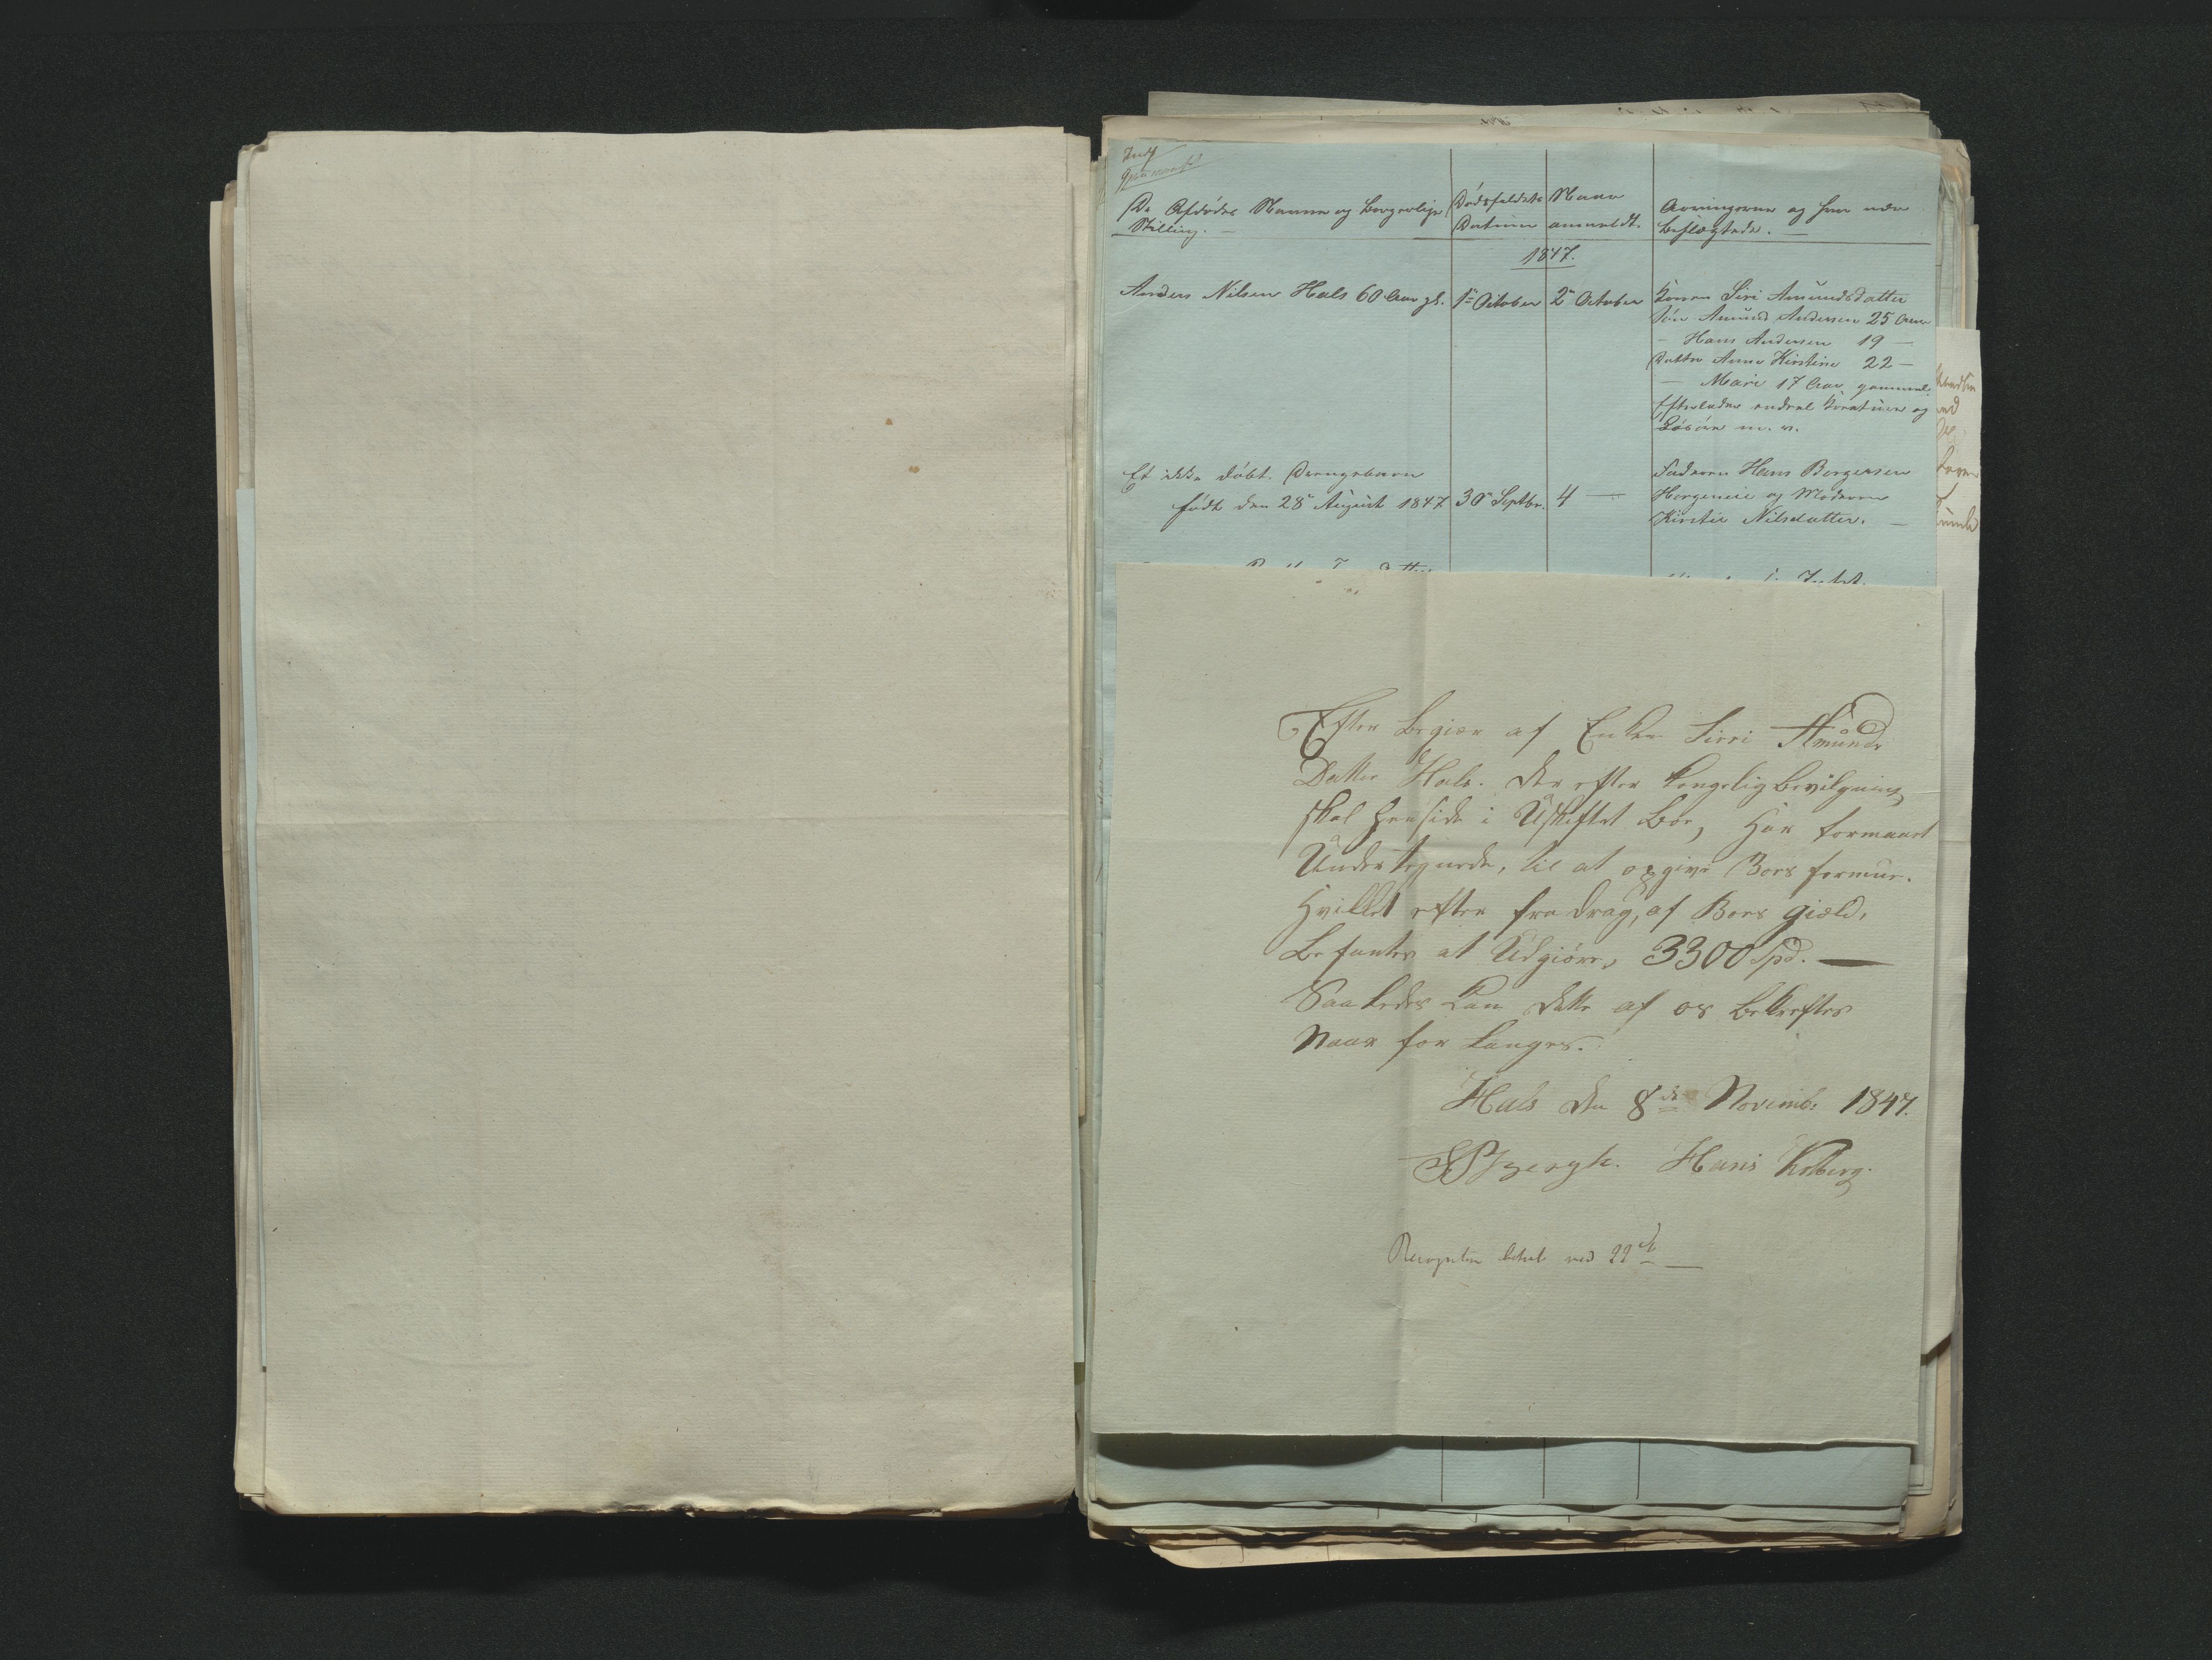 De Afdødes Navne og borgerlige
Stilling. —
Dødsfaldets
Datum
Naar
anmeldt.
Arvingerne og hver nær
beslægtede. —
1847.
Anders Nilsen Hals 60 Aar gl.
1ste October
2den October
Konen Siri Amundsdatter
Søn Amund Andersen 25 Aar
— Hans Andersen 19 —
Datter Anne Kirstine 22 —
— Mari 17 Aar gammel.
Efterlader endeel Kreaturer og
Løsøre m. v.
Et ikke døbt Drengebarn
født den 28de August 1847
30te Septbr.
4 —
Faderen Hans Borgersen
Horgeneie og Moderen
Kirstie Nilsdatter. —
Efter Begiær af Enken Sirri Amunds
Datter Hals. der efter kongelig bevilgning
skal hensidde i Uskiftet Boe, har formaaet
Undertegnede, til at opgive Boes formue.
hvilket efter fradrag, af Boes giæld,
Befantes at Udgiøre, 3300 Spd. —
Saaledes kan dette af os bekræftes
Naar forlanges.
Hals den 8de Novemb: 1847.
Hans Kolberg.
Recognition betalt med 22